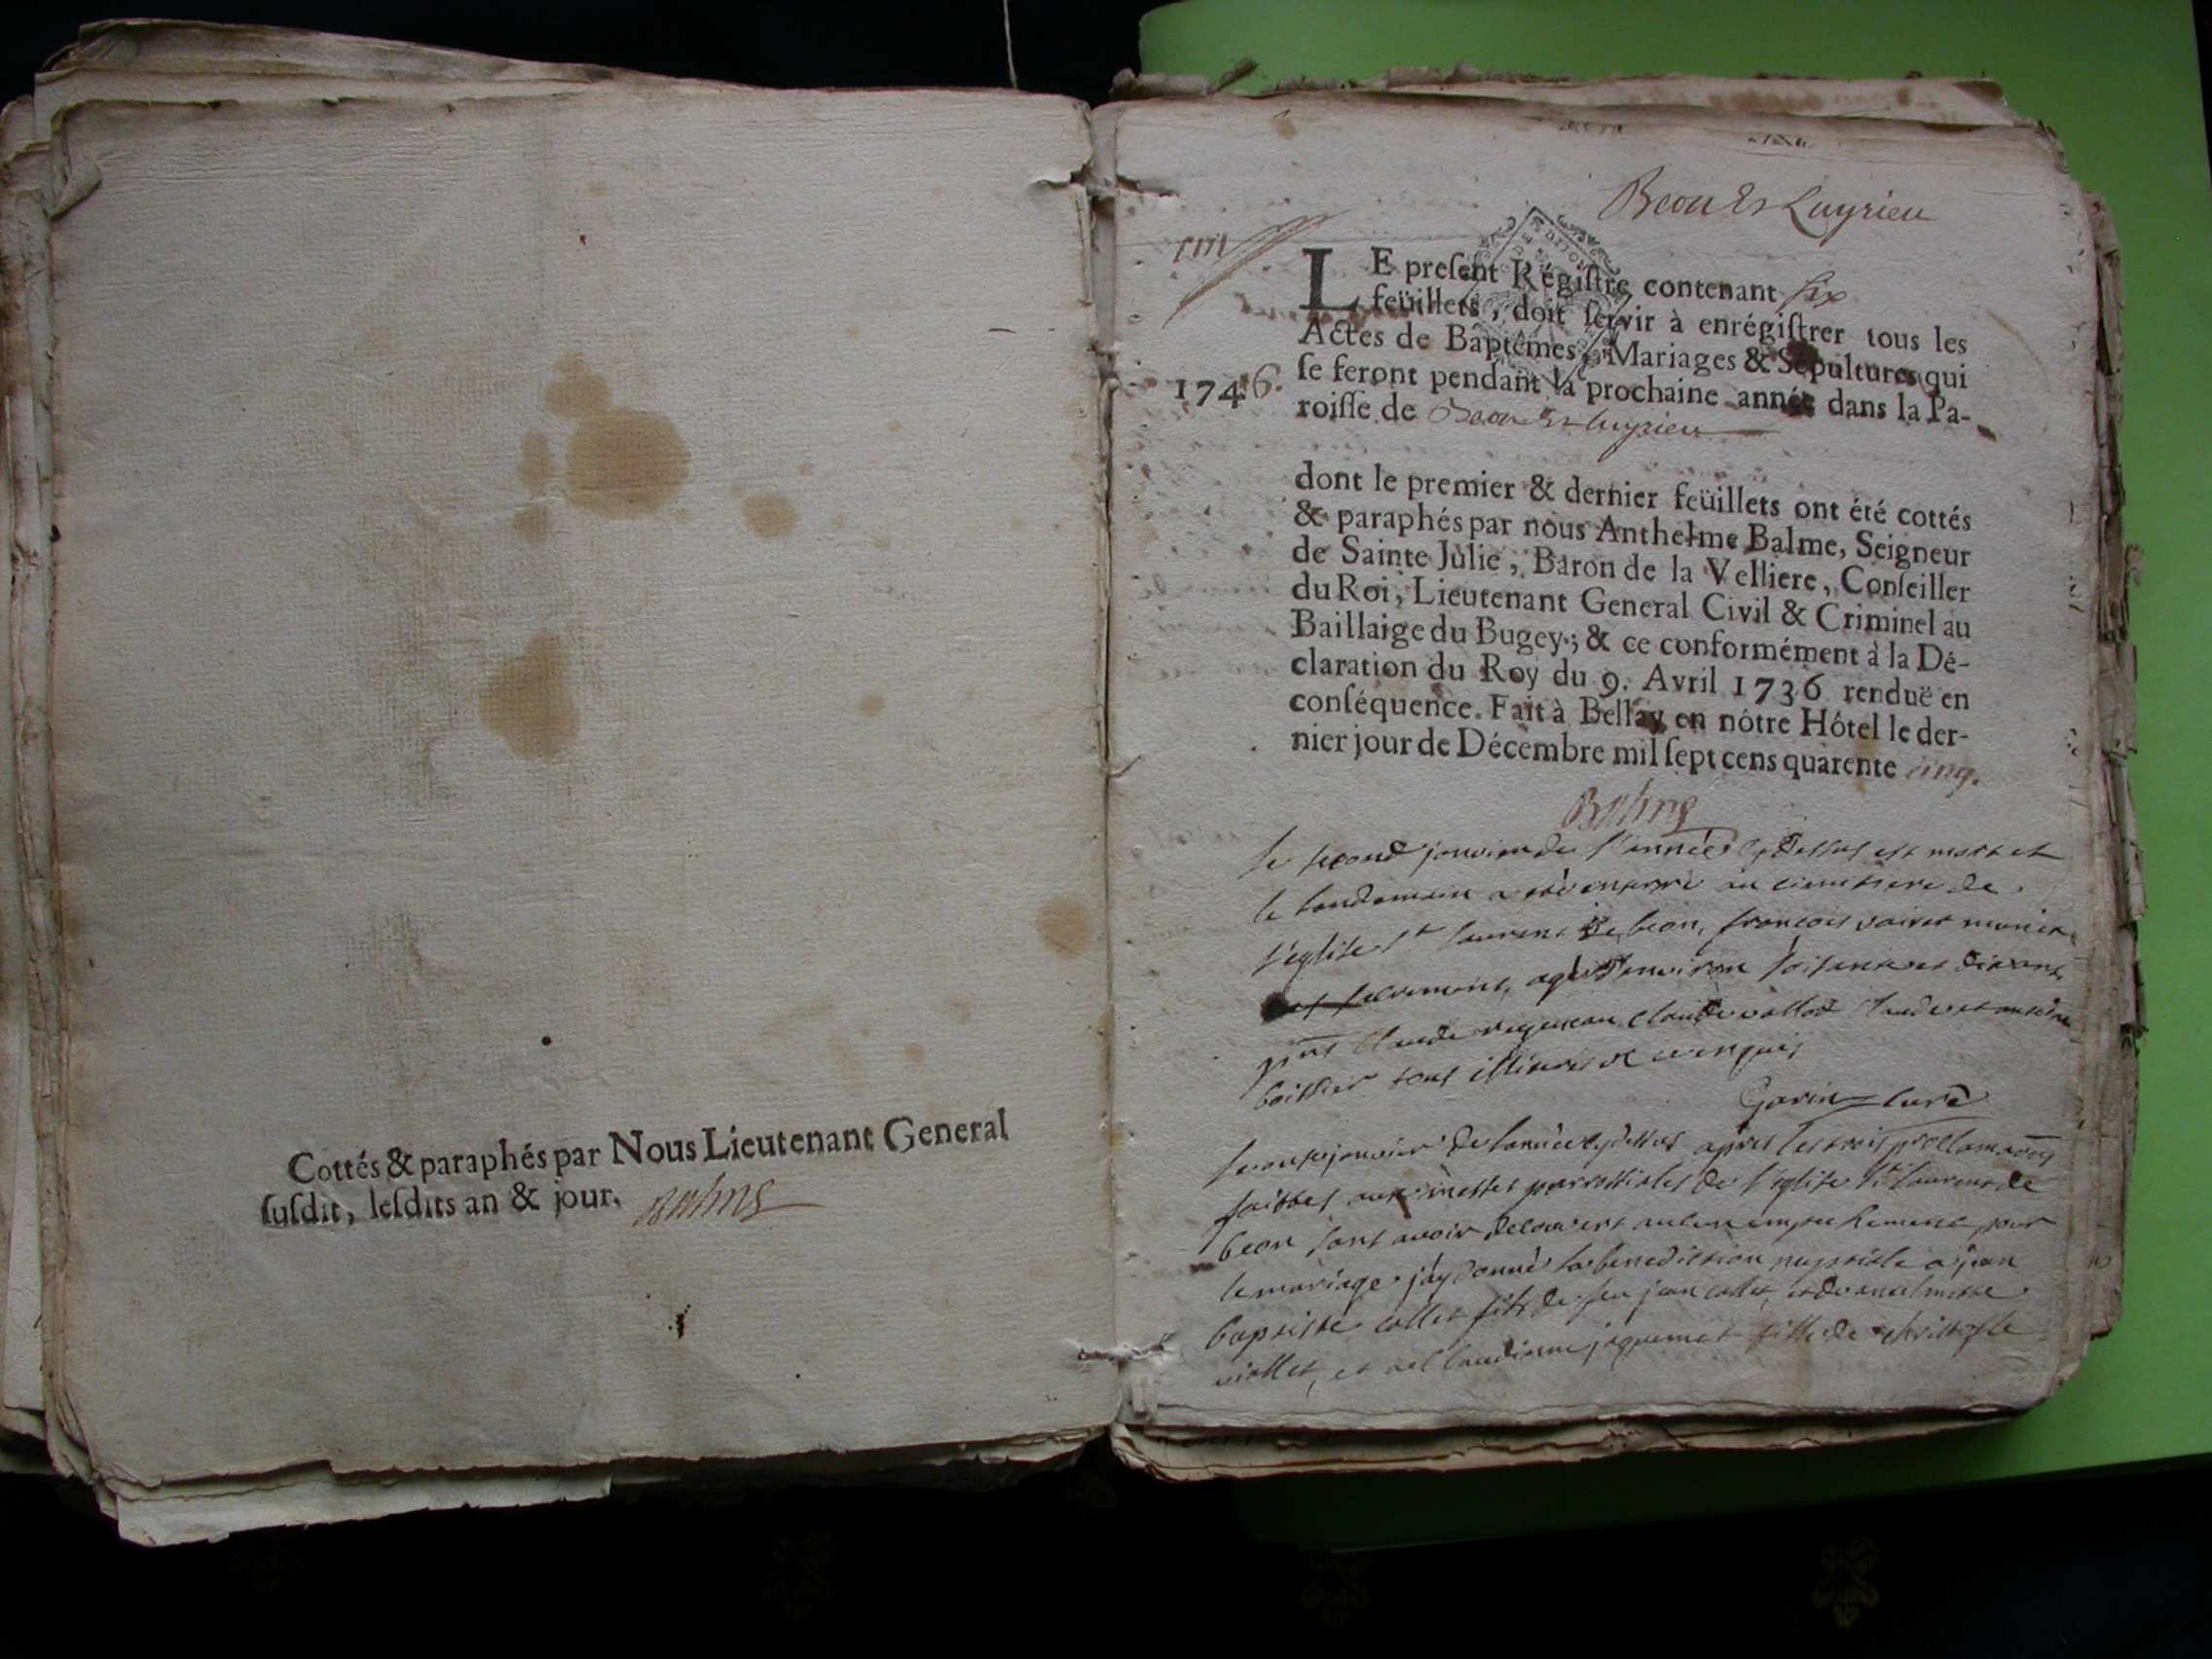 Cottés & paraphés par Nous Lieutenant General
ſuſdit, leſdits an & jour. Balme
Beon Et Luyrieu
LE preſent Régiſtre contenant six
feüillets, doit ſervir à enrégiſtrer tous les
Actes de Baptêmes, Mariages & Sepultures qui
1746. ſe feront pendant la prochaine année dans la Pa-
roiſſe de Beon Et Luyrieu
dont le premier & dernier feüillets ont été cottés
& paraphés par nous Anthelme Balme, Seigneur
de Sainte Julie, Baron de la Velliere, Conſeiller
du Roi, Lieutenant General Civil & Criminel au
Baillaige du Bugey; & ce conformément à la Dé-
claration du Roy du 9. Avril 1736 renduë en
conſéquence. Fait à Bellay en nôtre Hôtel le der-
nier jour de Décembre mil ſept cens quarente cinq.
Balme
le second janvier de l'année cydessus est mort et
le landemain a été enterré au cimetiere de
l'église St laurent de beon, francois muni
sacrement, agé d'environ soisante et dix ans
pnts Claude claude et antoine
tous illiterés de enquis
Garin curé
le janvier de l'année cydessus apres les trois proclamaons
faittes aux messes parroissiales de l'église St laurent de
beon sans avoir decouvert aucun empechement pour
le mariage j'ay donné la benediction nuptiale a jean
baptiste collet fils de feu jean collet, et de
viollet, et a Claudine jaquemet fille de christofle